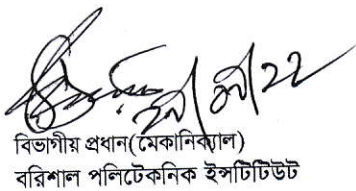 বিভাগীয় প্রধান(মেকানিক্যাল)
বরিশাল পলিটেকনিক ইন্সটিটিউট